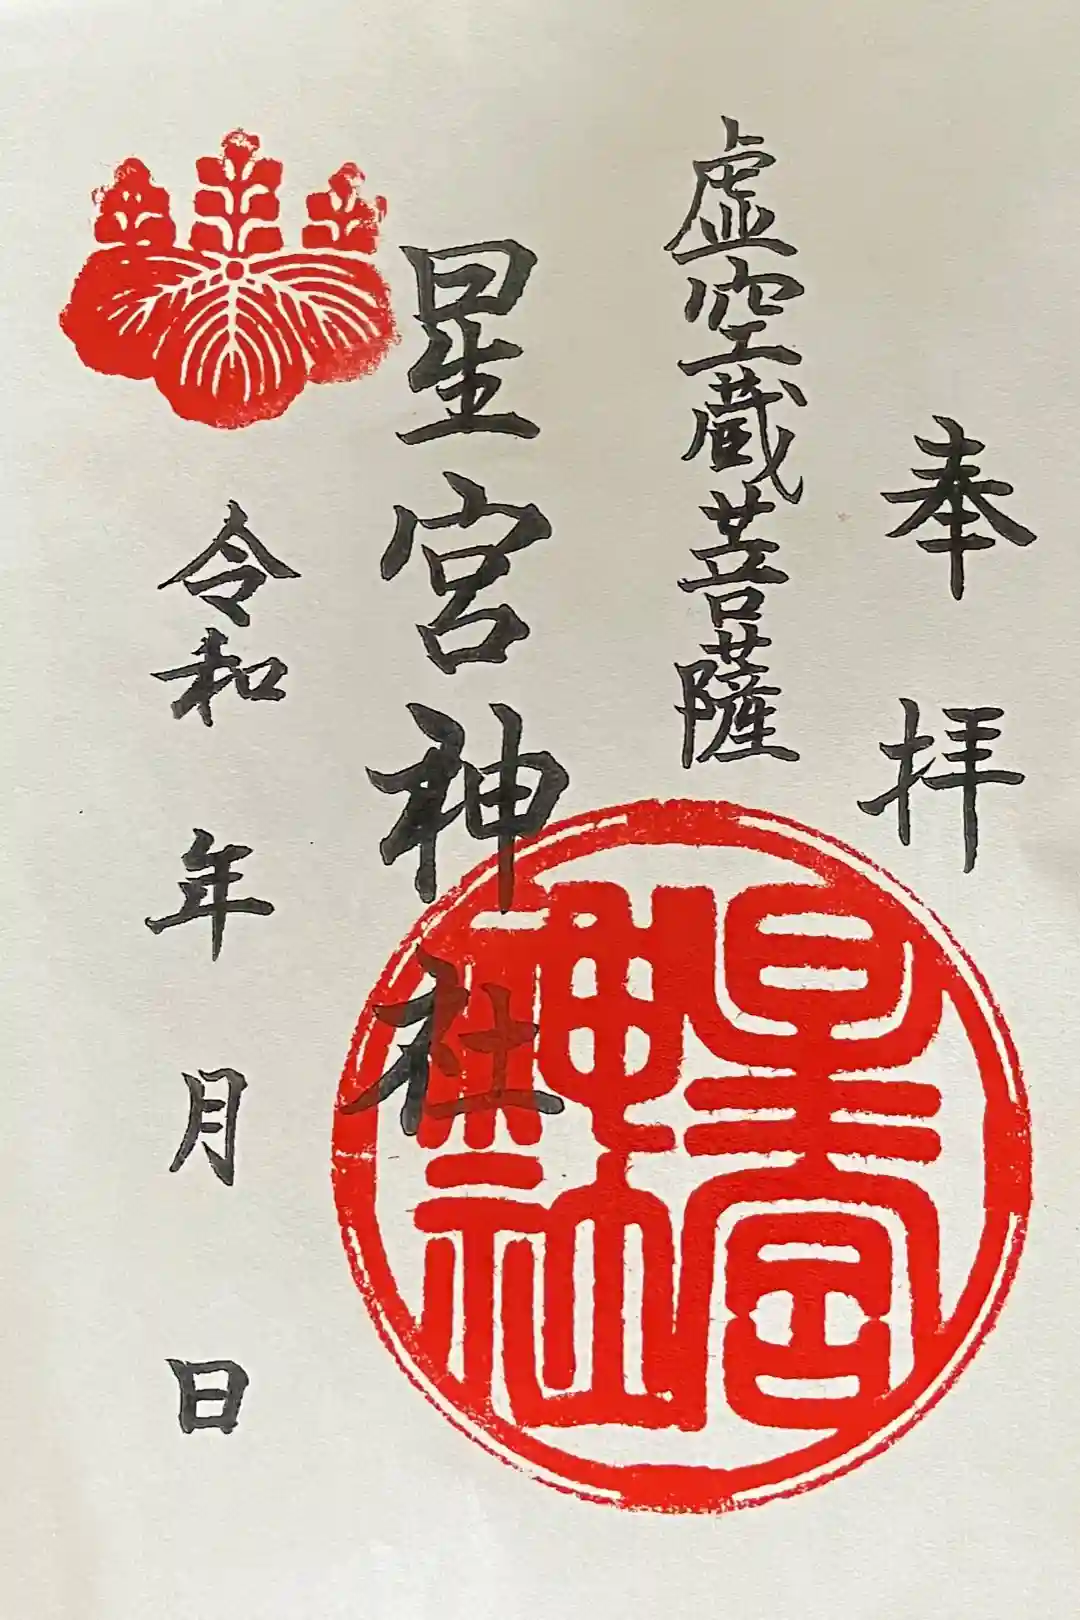 奉拝
虚空蔵菩薩
星宮神社
令和 年 月 日
星宮
神社